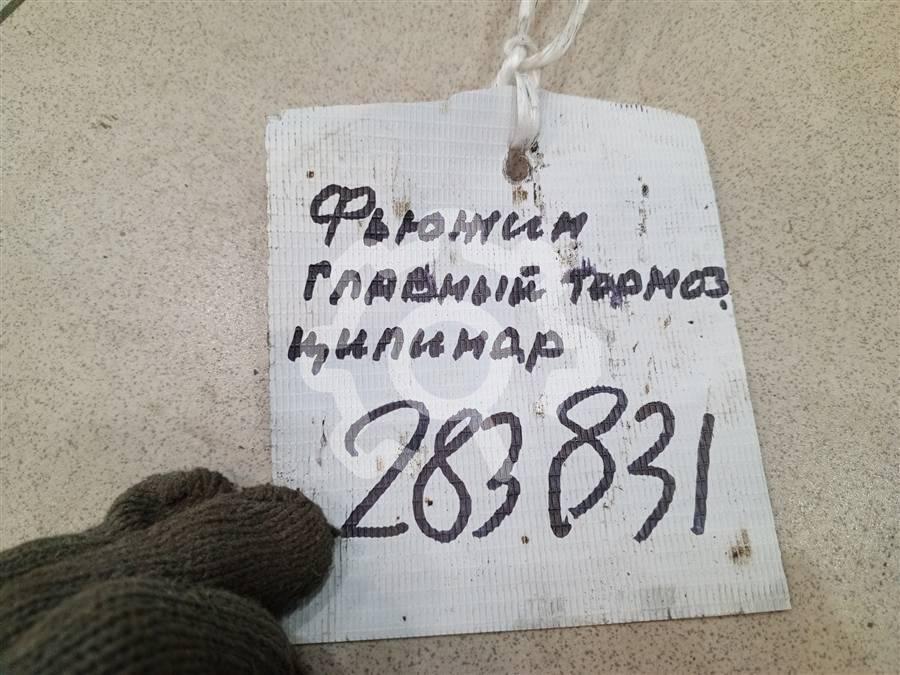 Фьюжин
главный тармоз.
цилиндр
283831